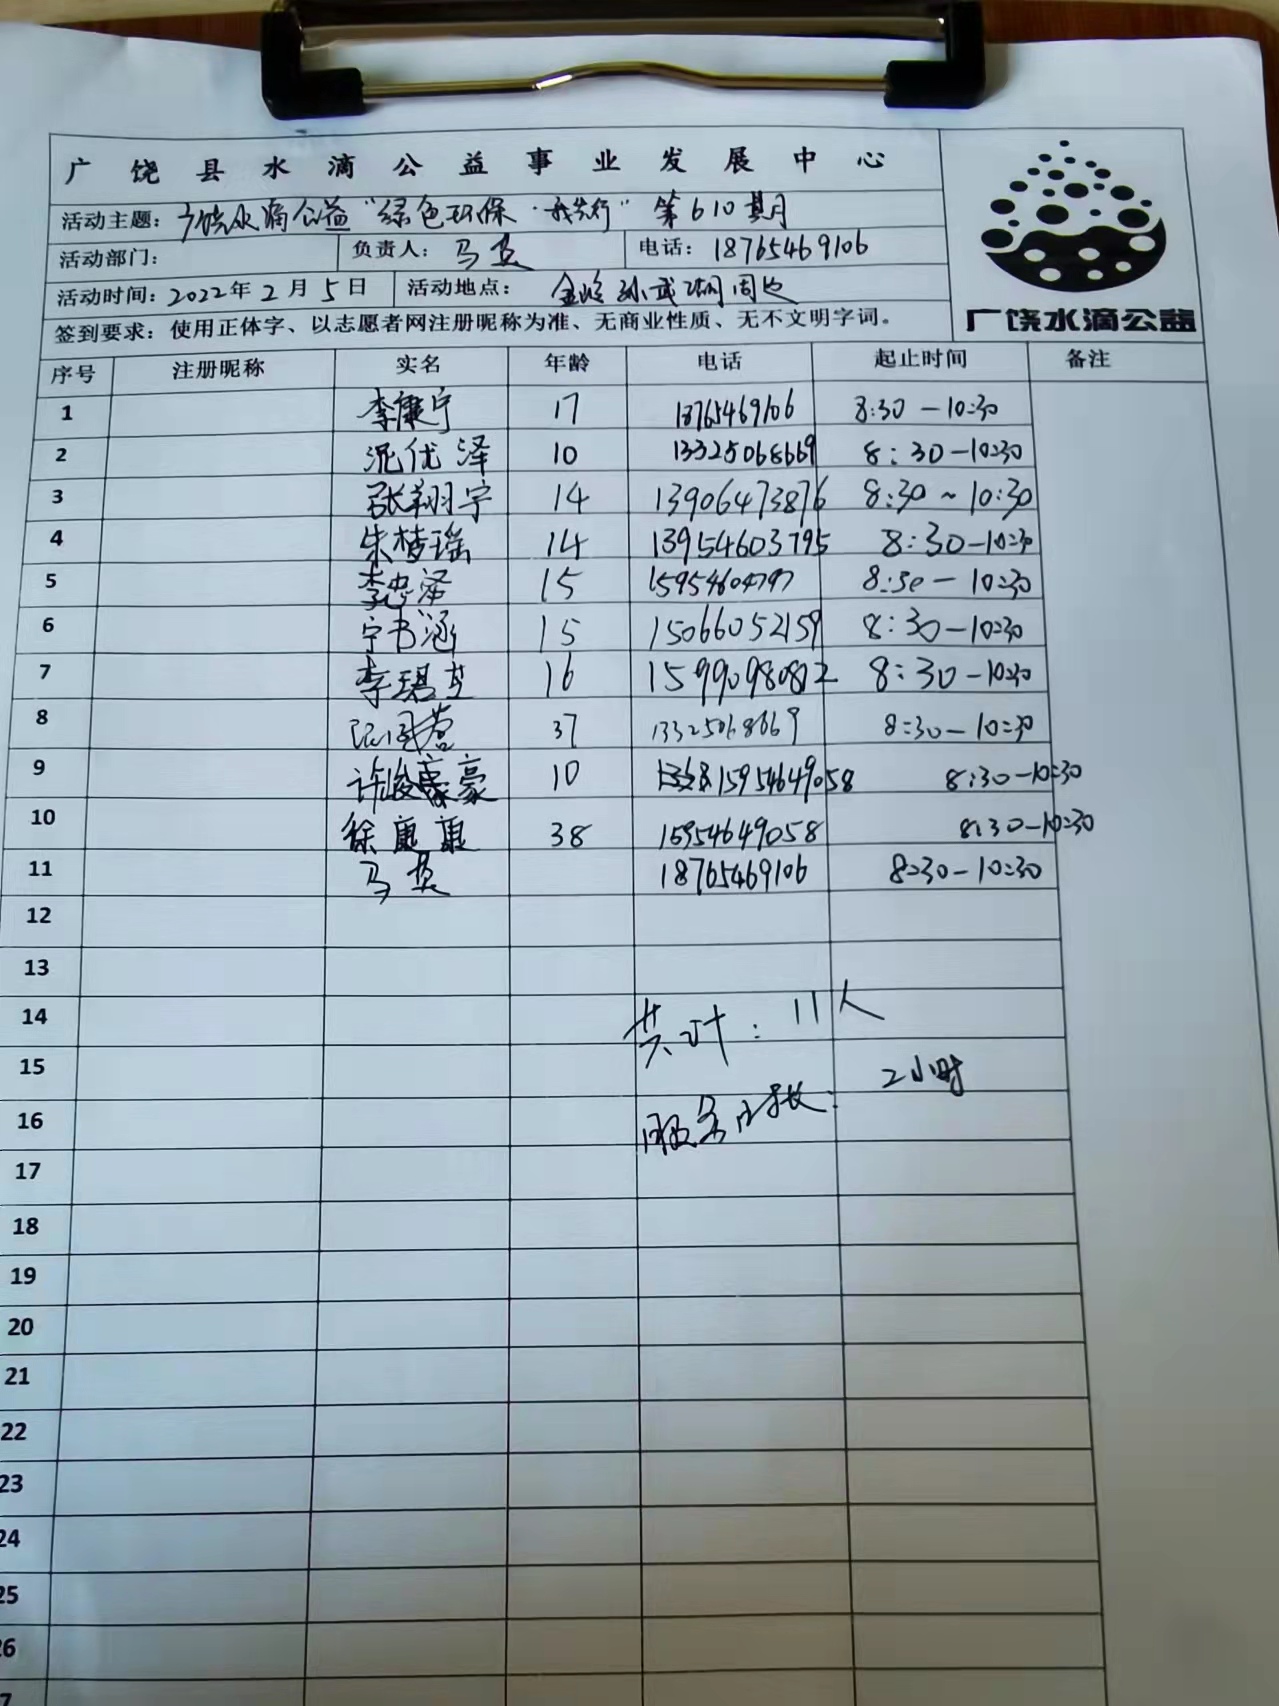 广饶县水滴公益事业发展中心
活动主题：广饶水滴公益“绿色环保·我先行”第610期
活动部门： 负责人：马英 电话：18765469106
活动时间：2022年2月5日 活动地点：金岭孙武湖周边
签到要求：使用正体字、以志愿者网注册昵称为准、无商业性质、无不文明字词。
广饶水滴公益
序号 注册昵称 实名 年龄 电话 起止时间 备注
1 李康宁 17 18765469106 8:30-10:30
2 泥优泽 10 13325068669 8:30-10:30
3 张翔宇 14 13906473876 8:30~10:30
4 朱梦瑶 14 13954603795 8:30-10:30
5 李忠泽 15 15954604797 8:30-10:30
6 宁书涵 15 15066052159 8:30-10:30
7 李珺 16 15990980812 8:30-10:30
8 37 13325068669 8:30-10:30
9 许峻豪 10 15954649058 8:30-10:30
10 徐康康 38 15954649058 8:30-10:30
11 马英 18765469106 8:30-10:30
12
13
14
共计：11人
15
服务时长：2小时
16
17
18
19
20
21
22
23
24
25
26
7